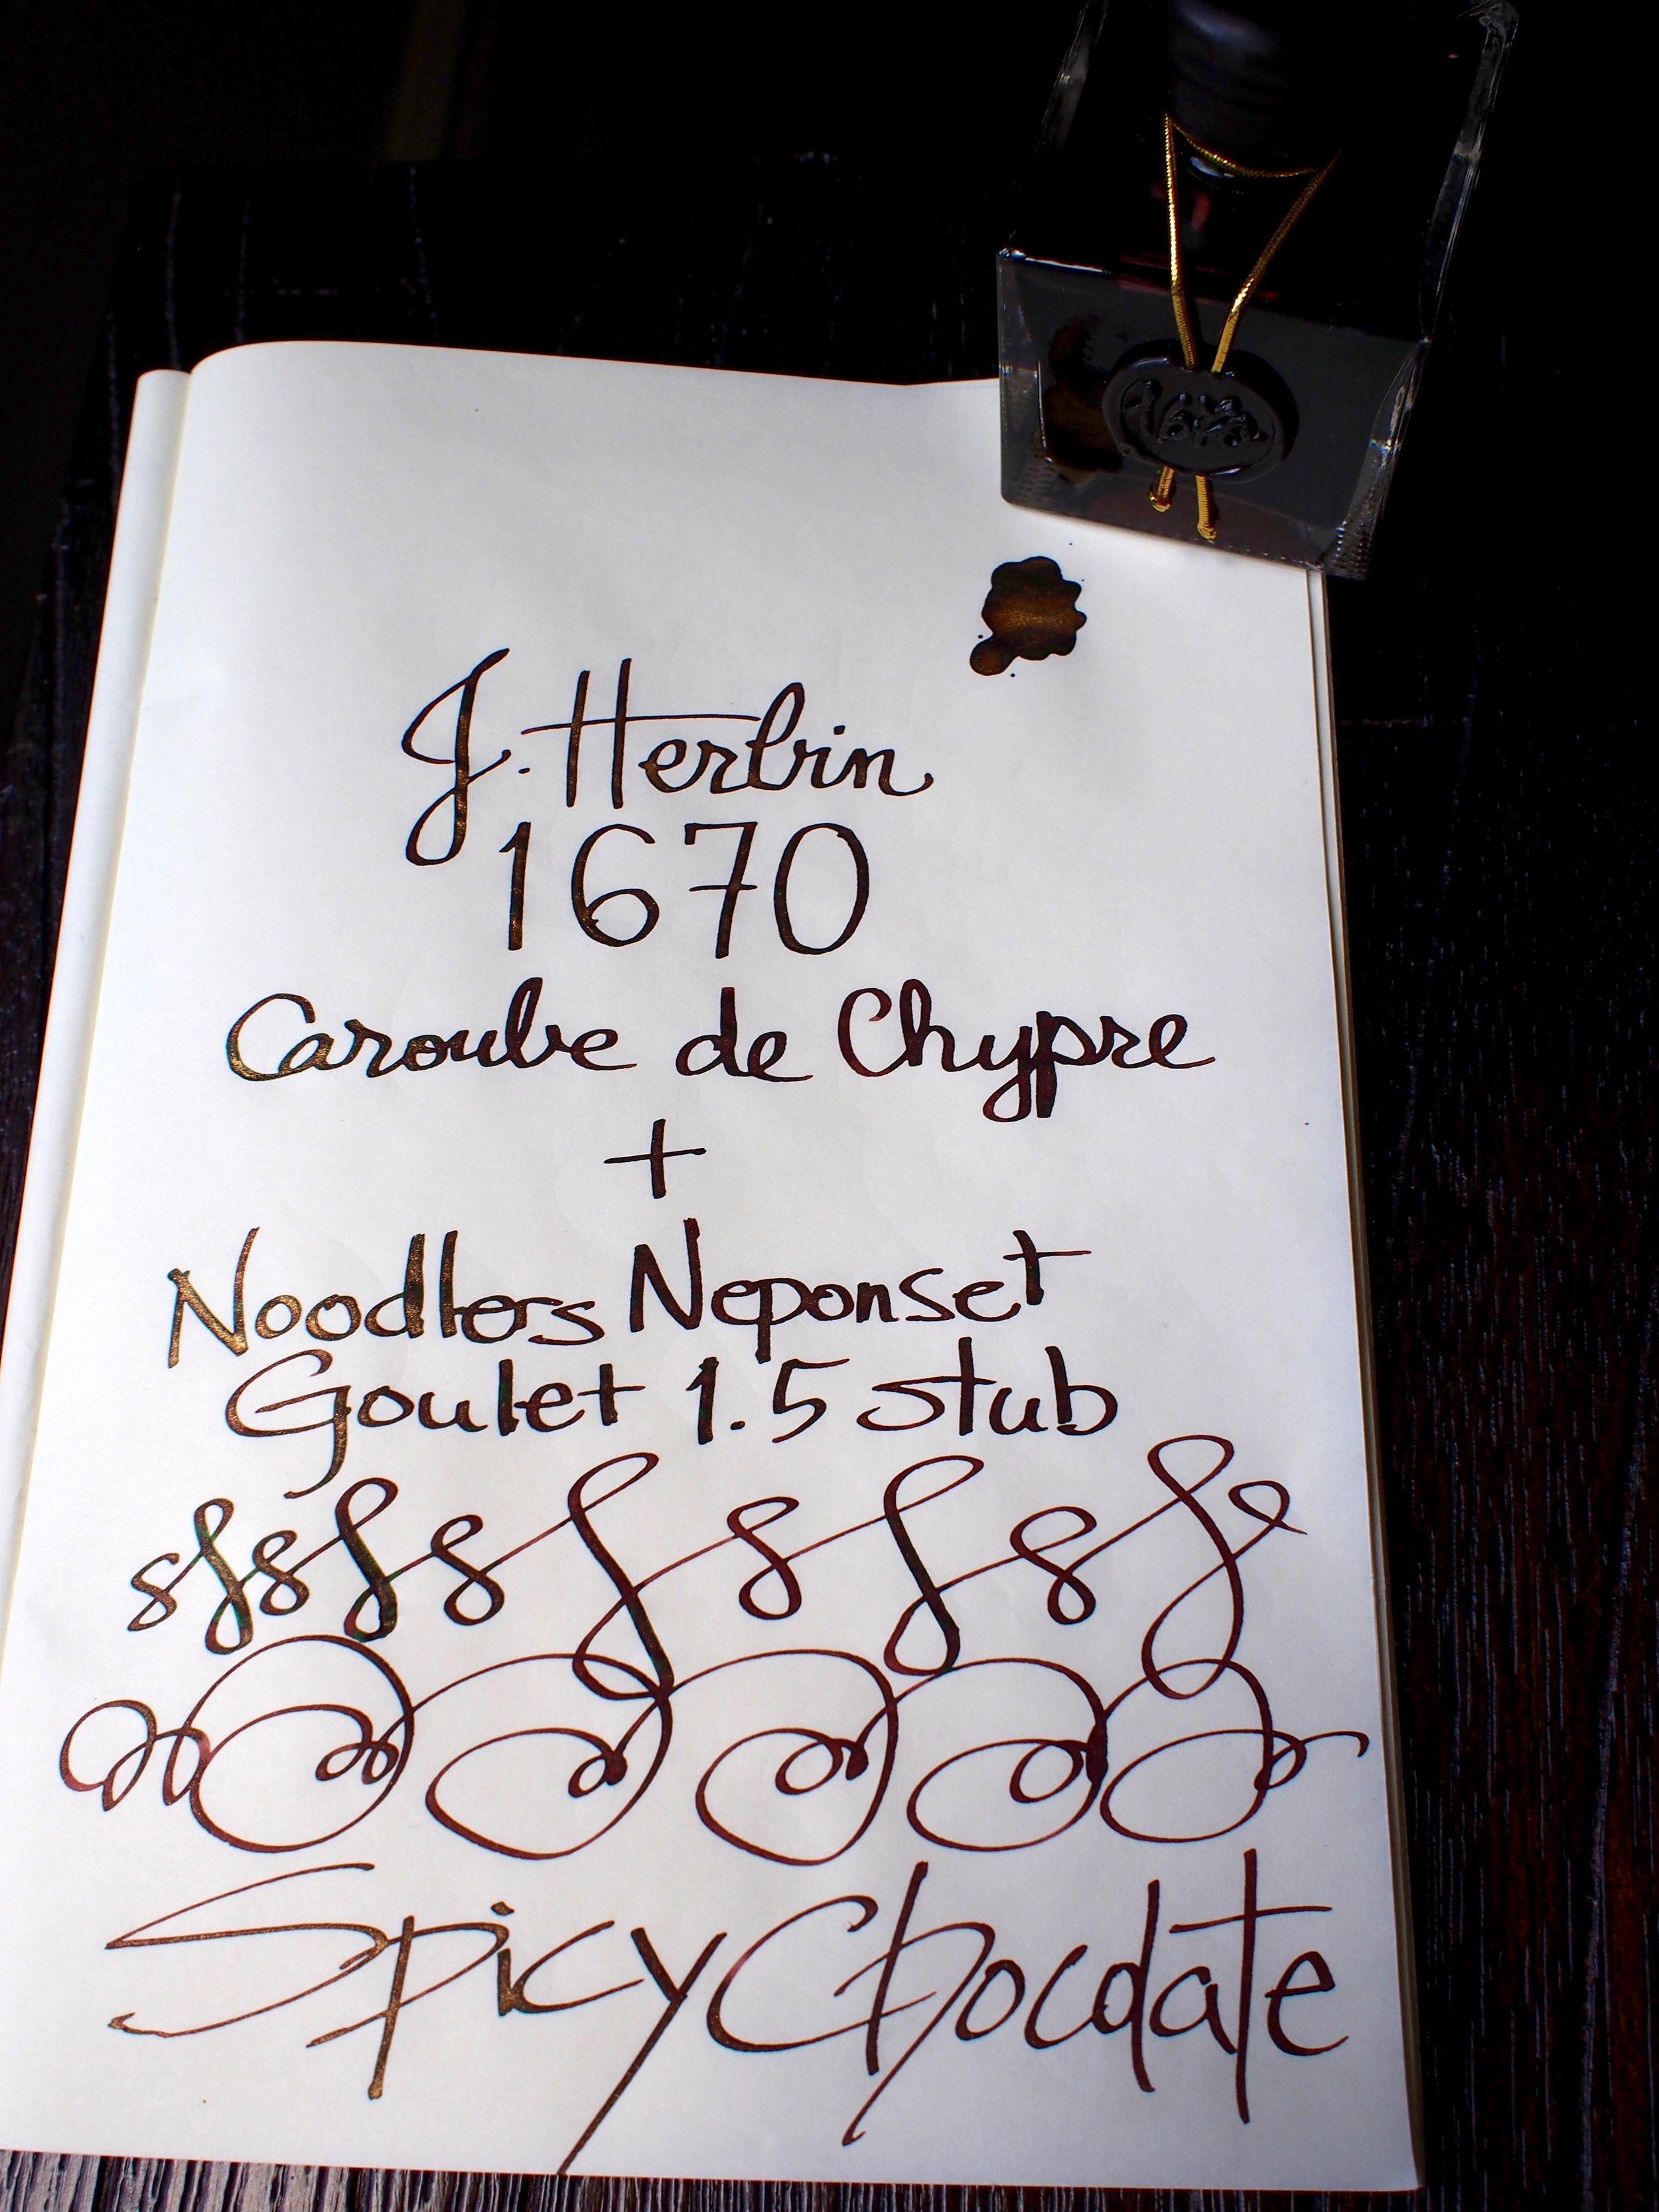 1670
J. Herbin
1670
Caroube de Chypre
+
Noodlers Neponset
Goulet 1.5 stub
Spicy Chocolate